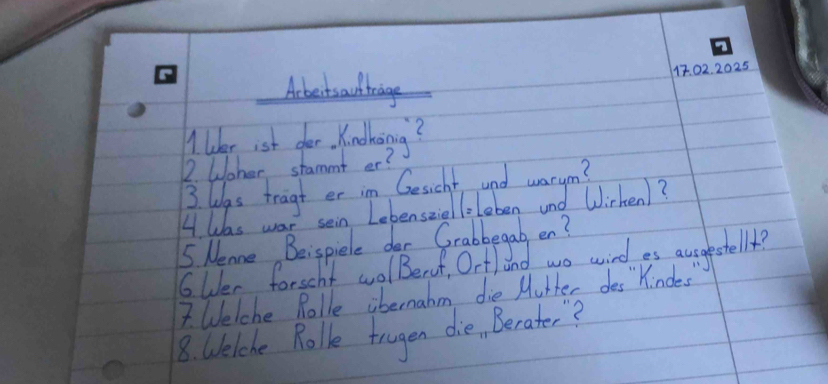 17.02.2025
Arbeitsaufträge
1. Wer ist der „Kindkönig"?
2. Woher stammt er?
3. Was trägt er im Gesicht und warum?
4. Was war sein Lebensziel(=Leben und Wirken)?
5. Nenne Beispiele der Grabbegaben?
6. Wer forscht wo(Beruf, Ort) und wo wird es ausgestellt?
7. Welche Rolle übernahm die Mutter des "Kindes"
8. Welche Rolle trugen die „Berater"?